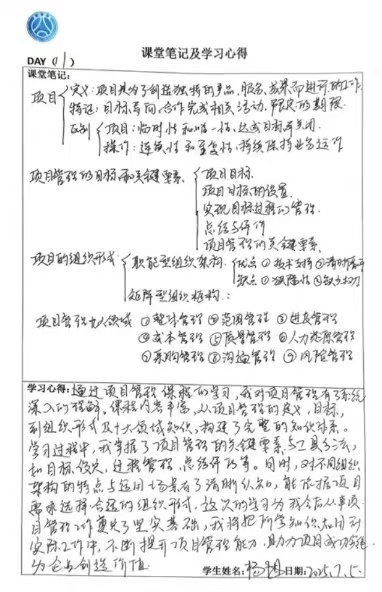 课堂笔记及学习心得
DAY (01)
课堂笔记:
项目 定义:项目是为了创造独特的产品、服务、成果而进行的工作
特征:目标导向,合作完成相关活动,限定的期限
区别 项目:临时性和唯一性,达成目标并关闭.
操作:连续性和重复性,持续保持业务运作
项目管理的目标和关键要素、 项目目标.
项目目标的设置.
实现目标过程的管理.
总结与评价
项目管理的关键要素.
项目的组织形式 职能型组织架构. 优点 ①技术支持 ②
缺点 ①
矩阵型组织结构.:
项目管理九大领域 ①整体管理 ②范围管理 ③进度管理
④成本管理 ⑤质量管理 ⑥人力资源管理
⑦采购管理 ⑧沟通管理 ⑨风险管理
学习心得:通过项目管理课程的学习,我对项目管理有了系统
深入的理解。课程内容丰富,从项目管理的定义,目标,
到组织形式及十大领域知识,构建了完整的知识体系。
学习过程中,我掌握了项目管理的关键要素与工具方法,
如目标设定,过程管理,总结评价等。同时,对不同组织
架构的特点与适用场景有了清晰认知,能依据项目
需求选择合适的组织形式。这次的学习为我今后从事项
目管理工作奠定了坚实基础,我将把所学知识运用到
实际工作中,不断提升项目管理能力,助力项目成功实现
为企业创造价值.
学生姓名: 日期:2025.7.5.